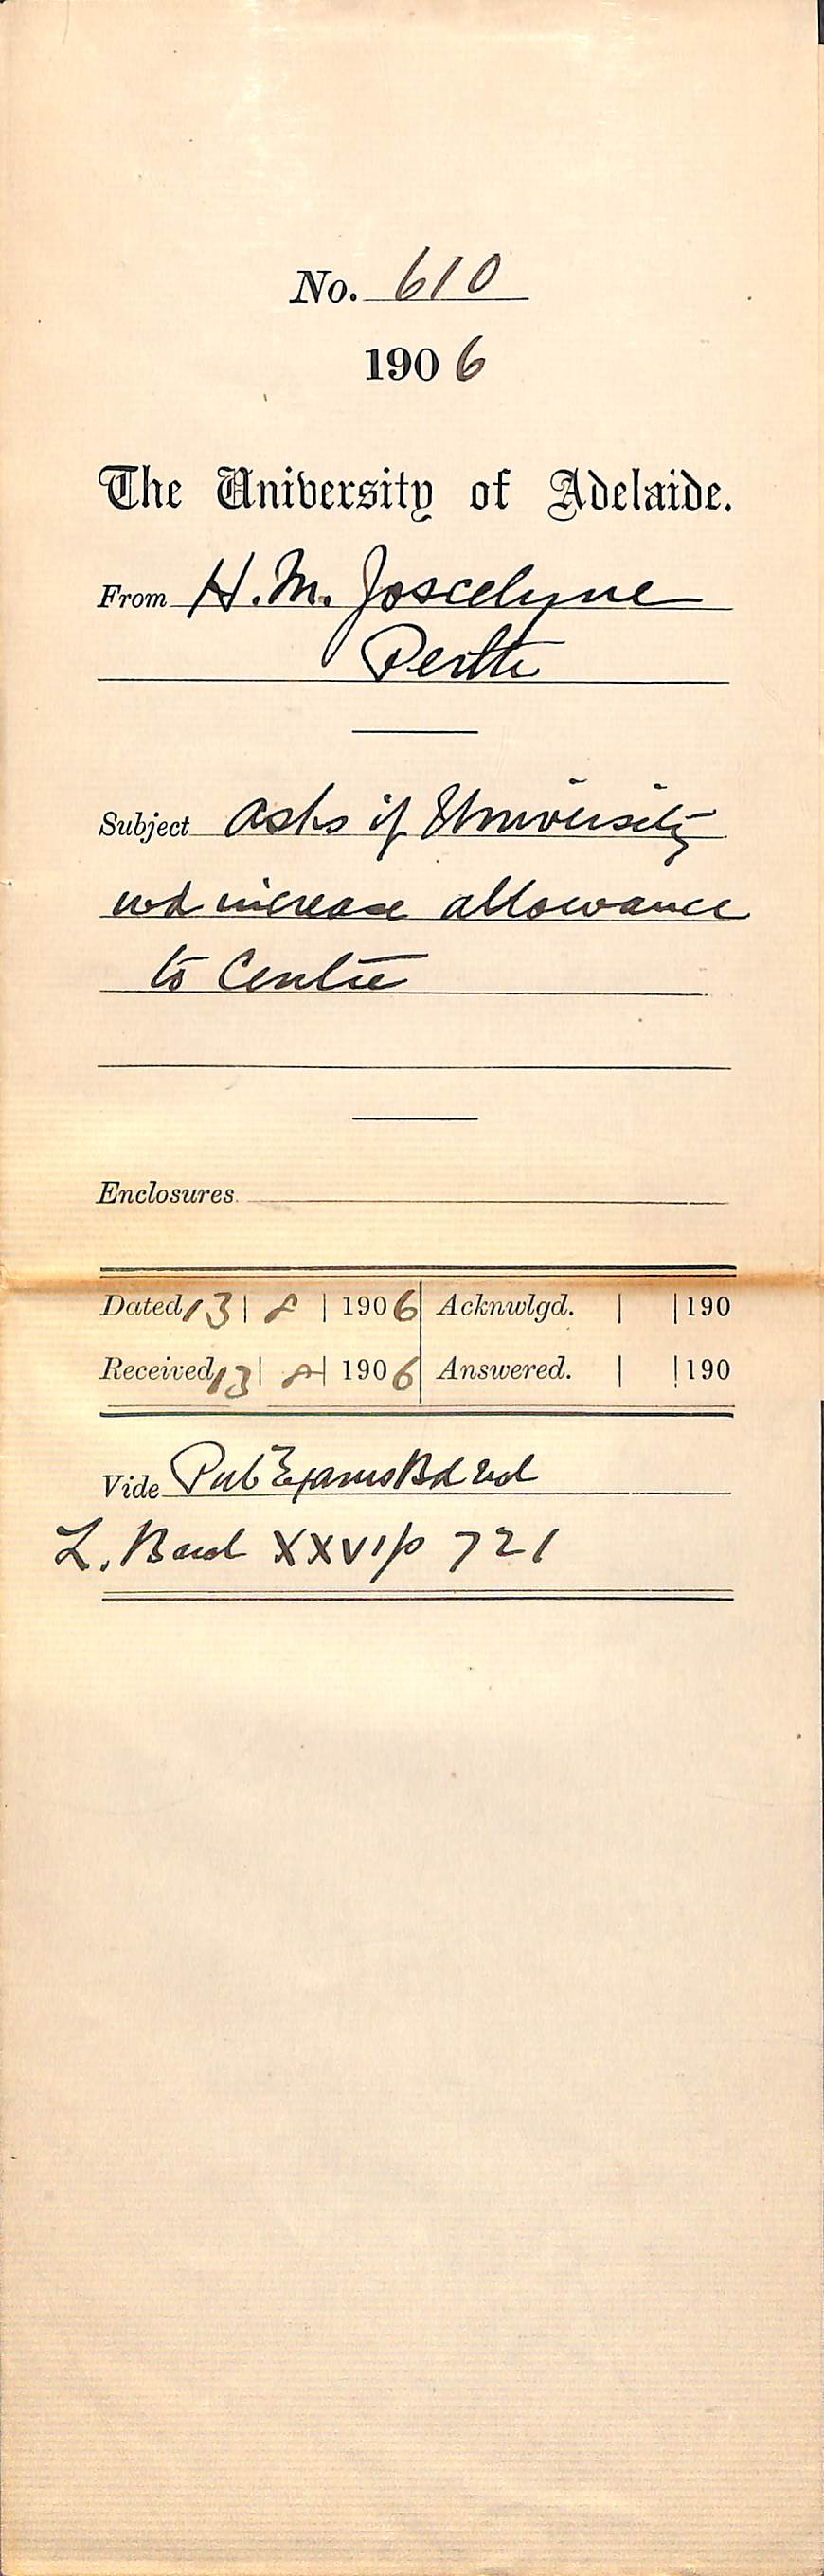 No. 610
1906
The University of Adelaide.
From H. M. Joscelyne
Perth
Subject Asks if University
wd increase allowance
to Centre
Enclosures
Dated 13 | 8 | 1906 Acknwlgd. | | 190
Received 13 | 8 | 1906 Answered. | | 190
Vide Pub Exams Bd
L. Book XXVI p 721